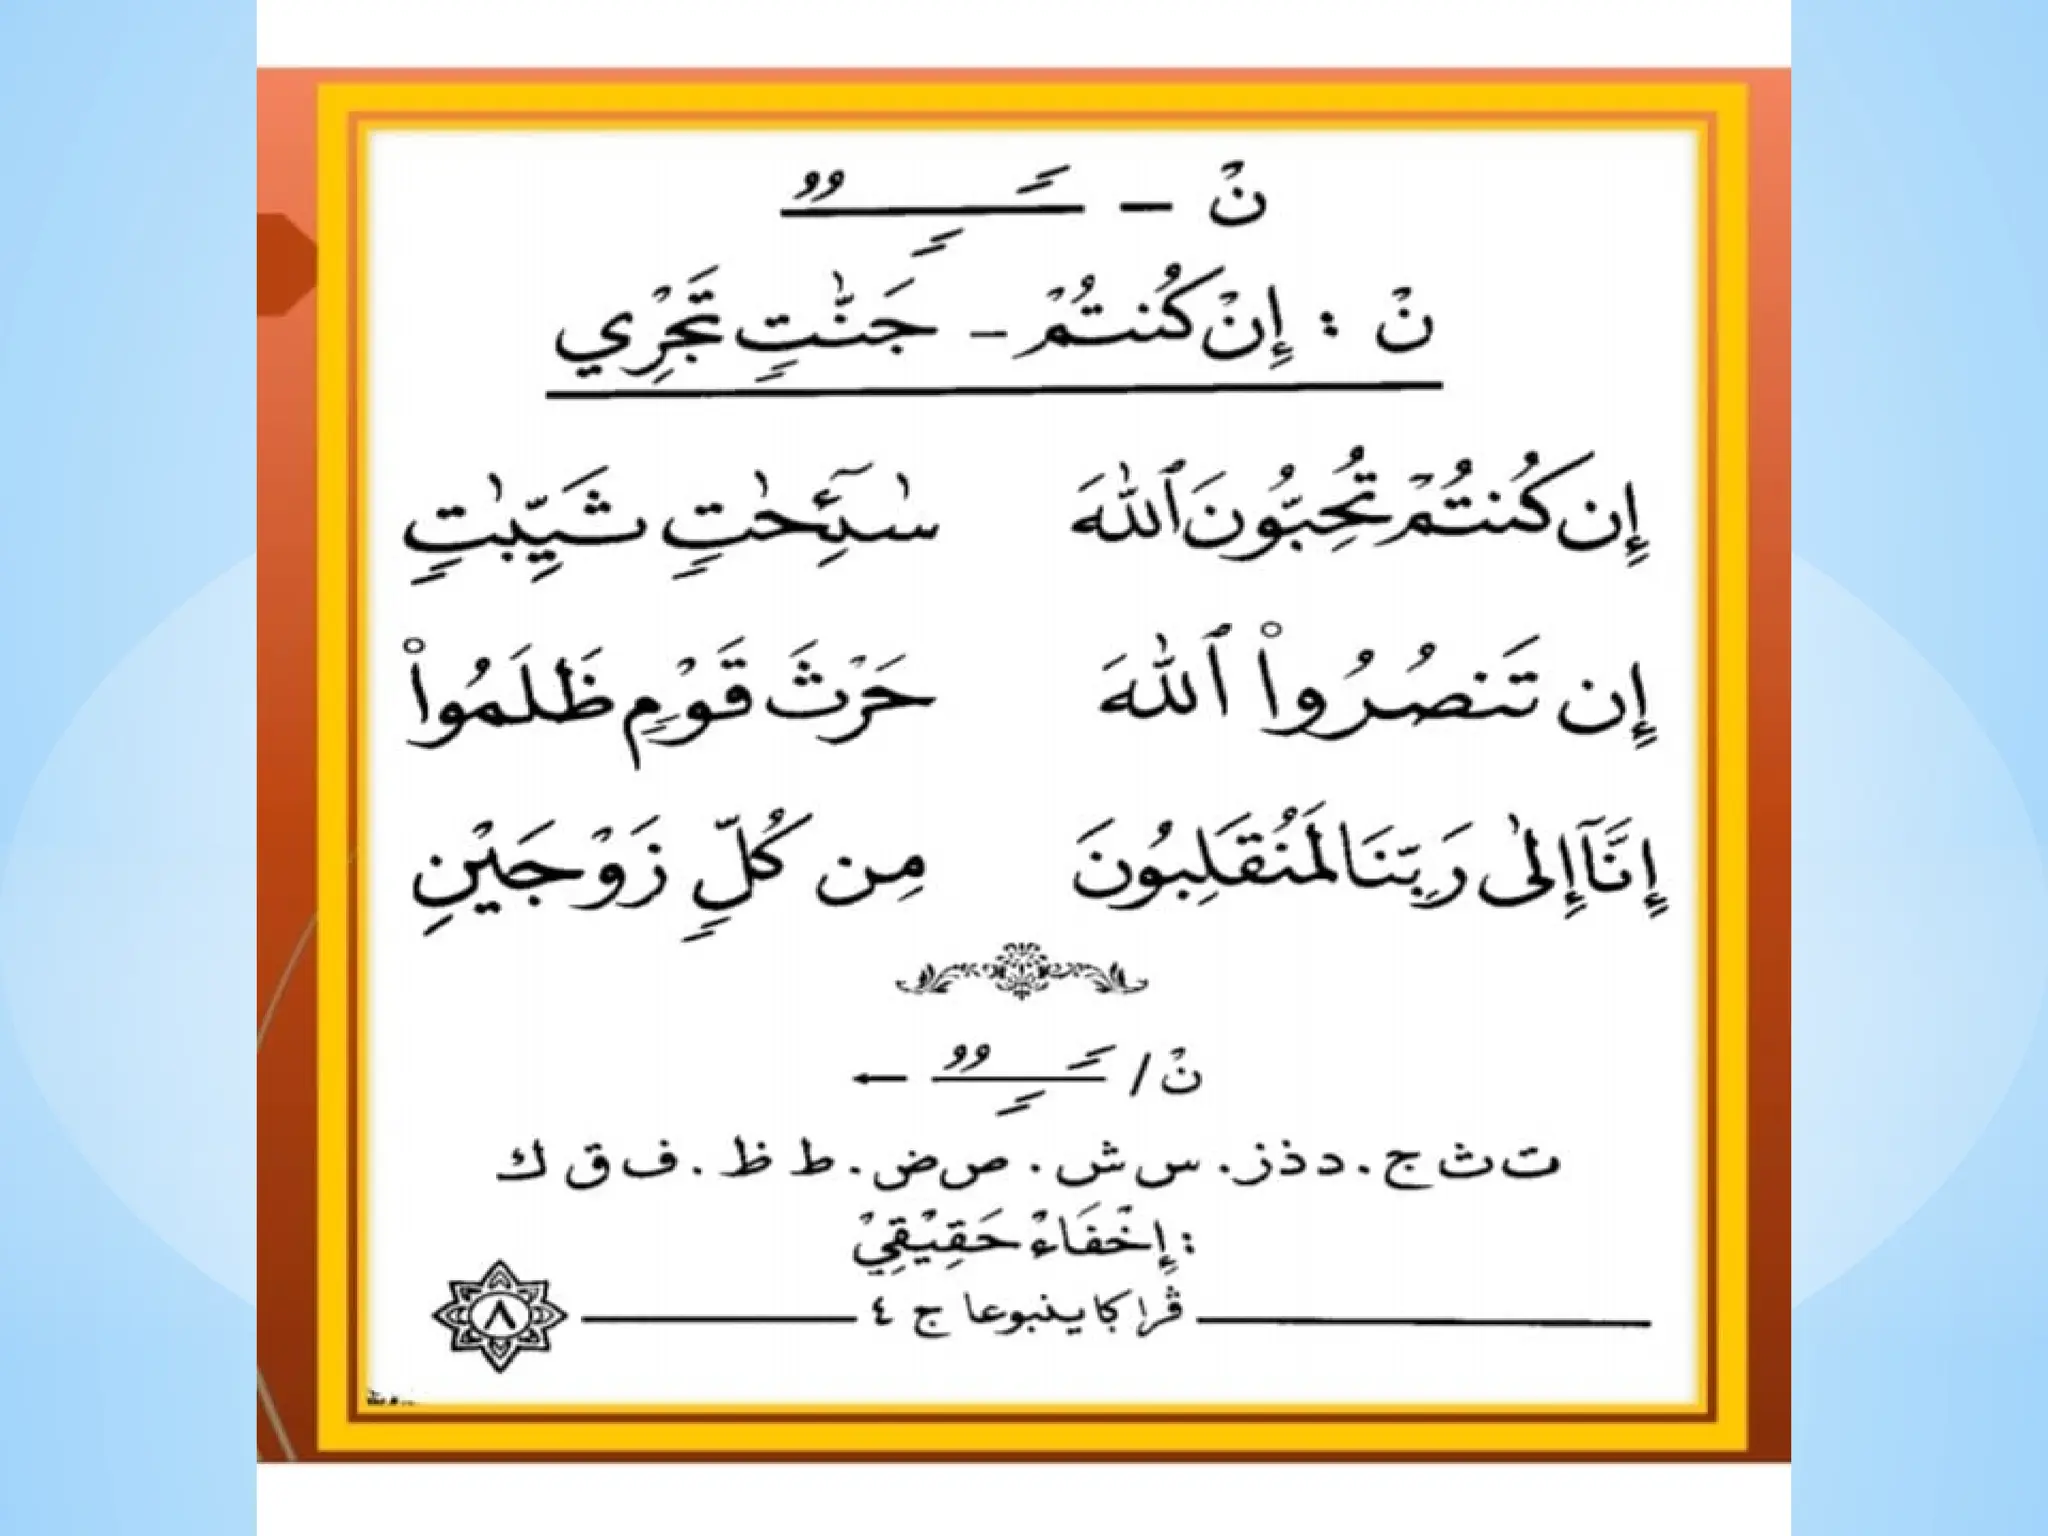 نْ – ـًـٍـٌ
نْ : إِنْ كُنتُمْ – جَنّٰتٍ تَجْرِي
إِن كُنتُمْ تُحِبُّونَ ٱللّٰهَ سٰٓئِحٰتٍ ثَيِّبٰتٍ
إِن تَنصُرُوا۟ ٱللّٰهَ حَرْثَ قَوْمٍ ظَلَمُوا۟
إِنَّآ إِلٰى رَبِّنَا لَمُنْقَلِبُونَ مِن كُلٍّ زَوْجَيْنِ
نْ / ـًـٍـٌ ←
ت ث ج . د ذ ز . س ش . ص ض . ط ظ . ف ق ك
: إِخْفَاءْ حَقِيْقِيْ
قراكاينبوعا ج ٤
٨